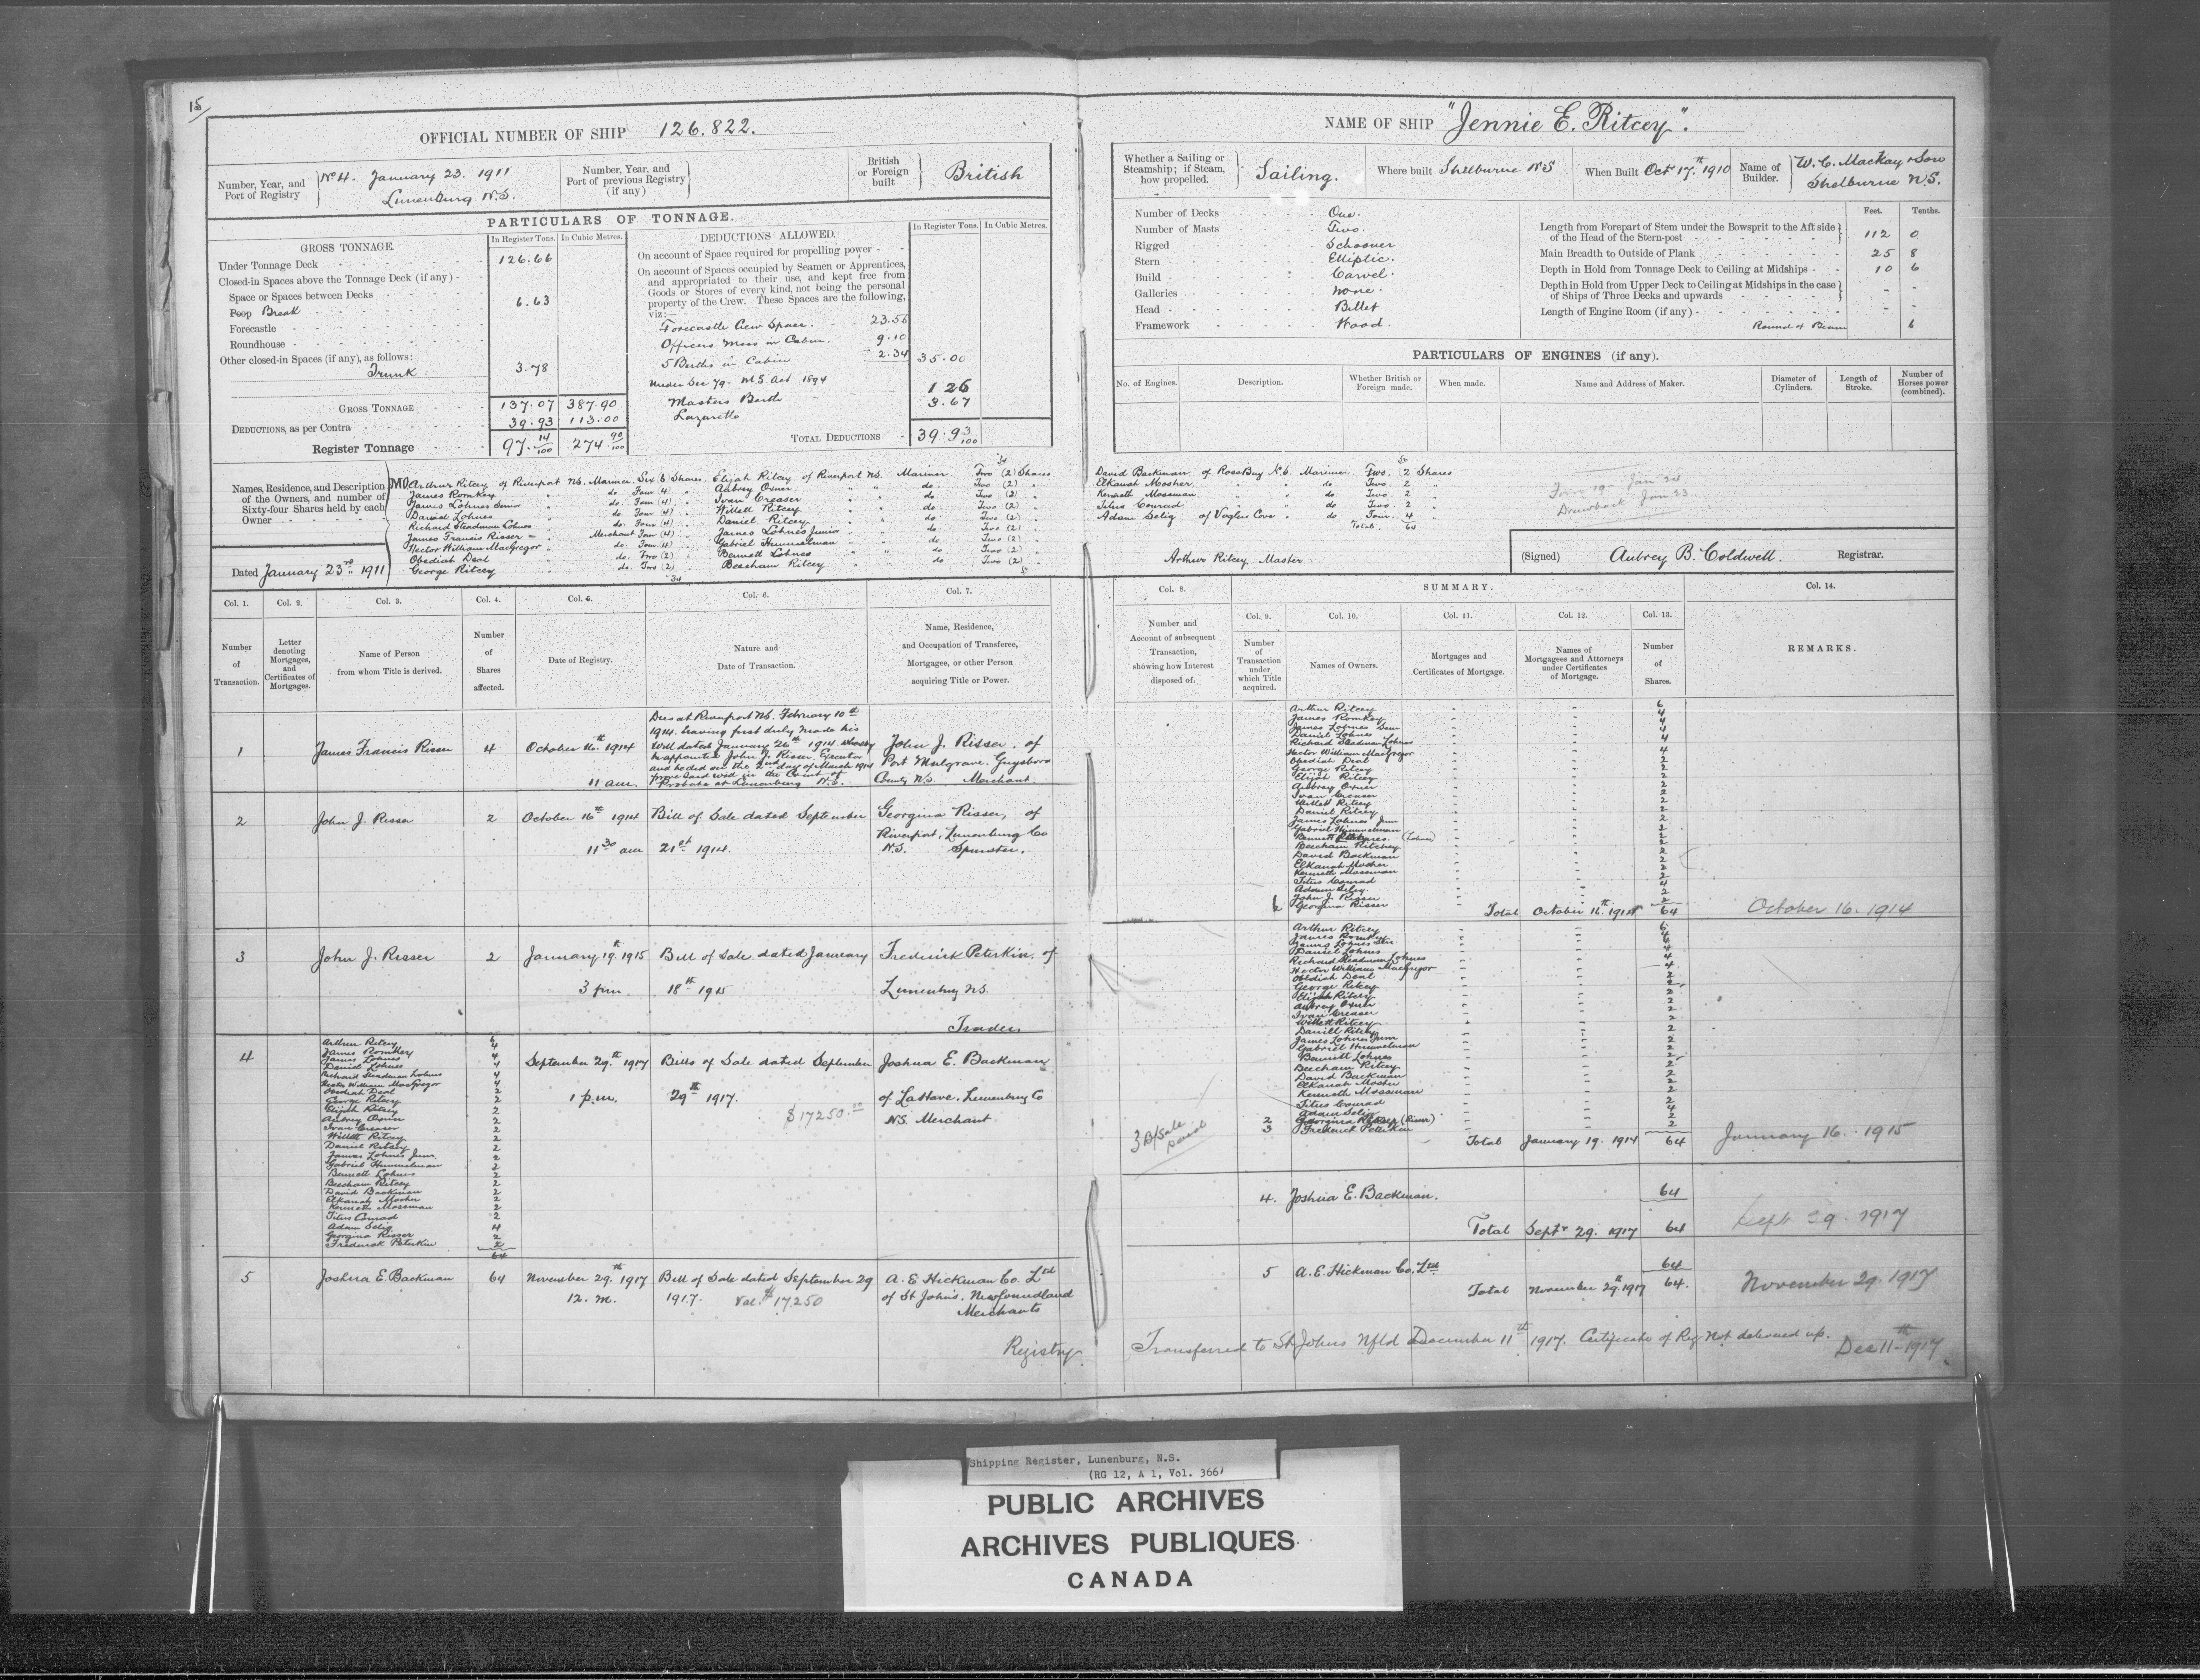 15/
OFFICIAL NUMBER OF SHIP 126.822.
Number, Year, and Port of Registry
No 4. January 23. 1911
Lunenburg N.S.
Number, Year, and Port of previous Registry (if any)
British or Foreign built
British
PARTICULARS OF TONNAGE.
GROSS TONNAGE.
In Register Tons. In Cubic Metres.
Under Tonnage Deck 126.66
Closed-in Spaces above the Tonnage Deck (if any)
Space or Spaces between Decks
Poop Break 6.63
Forecastle
Roundhouse
Other closed-in Spaces (if any), as follows:
Trunk 3.78
GROSS TONNAGE 137.07 387.90
DEDUCTIONS, as per Contra 39.93 113.00
Register Tonnage 97.14/100 274.90/100
DEDUCTIONS ALLOWED.
In Register Tons. In Cubic Metres.
On account of Space required for propelling power
On account of Spaces occupied by Seamen or Apprentices,
and appropriated to their use, and kept free from
Goods or Stores of every kind, not being the personal
property of the Crew. These Spaces are the following,
viz:—
Forecastle Crew Space. 23.56
Officers Mess in Cabin. 9.10
5 Berths in Cabin 2.34 35.00
Under Sec 79- M.S. Act 1894
Masters Berth 1 26
Lazarette 3.67
TOTAL DEDUCTIONS 39.93/100
Names, Residence, and Description
of the Owners, and number of
Sixty-four Shares held by each
Owner
Dated January 23rd 1911
Arthur Ritcey of Riverport NS. Mariner. Six (6) Shares.
James Romkey " do Four (4) "
James Lohnes Senior " do Four (4) "
Daniel Lohnes " do. Four (4) "
Richard Steadman Lohnes " do. Four (4) "
James Francis Risser " Merchant Four (4) "
Hector William MacGregor " do. Four (4) "
Obediah Deal " do. Two (2) "
George Ritcey " do. Two (2) "
34
34
Elijah Ritcey of Riverport NS. Mariner. Two (2) Shares
Aubrey Oxner " " do Two (2) "
Ivan Creaser " " do Two (2) "
Willett Ritcey " " do. Two (2) "
Daniel Ritcey " " do Two (2) "
James Lohnes Junior " " do Two (2) "
Gabriel Himmelman " " do Two (2) "
Bennett Lohnes " " do Two (2) "
Beecham Ritcey " " do Two (2) "
NAME OF SHIP "Jennie E. Ritcey".
Whether a Sailing or Steamship; if Steam, how propelled.
Sailing.
Where built Shelburne NS
When Built Oct 17th 1910
Name of Builder.
W. C. MacKay & Son
Shelburne N.S.
Number of Decks One.
Number of Masts Two.
Rigged Schooner
Stern Elliptic.
Build Carvel.
Galleries None.
Head Billet
Framework Wood.
Feet. Tenths.
Length from Forepart of Stem under the Bowsprit to the Aft side
of the Head of the Stern-post 112 0
Main Breadth to Outside of Plank 25 8
Depth in Hold from Tonnage Deck to Ceiling at Midships 10 6
Depth in Hold from Upper Deck to Ceiling at Midships in the case
of Ships of Three Decks and upwards
Length of Engine Room (if any)
Round of Beam 6
PARTICULARS OF ENGINES (if any).
No. of Engines. Description. Whether British or Foreign made. When made. Name and Address of Maker. Diameter of Cylinders. Length of Stroke. Number of Horses power (combined).
David Backman of Rose Bay N.S. Mariner. Two. (2 Shares
Elkanah Mosher " " do Two. 2 "
Kenneth Mossman " " do Two. 2 "
Titus Conrad " " do Two. 2 "
Adam Selig of Voglers Cove " do Four. 4 "
Total. 64
Drawback Jan 23
Arthur Ritcey Master
(Signed) Aubrey B. Coldwell. Registrar.
Col. 1. Col. 2. Col. 3. Col. 4. Col. 5. Col. 6. Col. 7.
Number of Transaction.
Letter denoting Mortgages, and Certificates of Mortgages.
Name of Person from whom Title is derived.
Number of Shares affected.
Date of Registry.
Nature and Date of Transaction.
Name, Residence, and Occupation of Transferee, Mortgagee, or other Person acquiring Title or Power.
1 James Francis Risser 4 October 16th 1914 11 am.
Dies at Riverport NS. February 10th
1914. having first duly made his
Will dated January 26th 1914 whereby
he appointed John J. Risser, Executor
and he did on the 2nd day of March 1914
prove said will in the Court of
Probate at Lunenburg N.S.
John J. Risser. of
Port Mulgrave. Guysboro
County N.S. Merchant.
2 John J. Risser 2 October 16th 1914 11 30 am
Bill of Sale dated September
21st 1914.
Georgina Risser, of
Riverport, Lunenburg Co
N.S. Spinster.
3 John J. Risser 2 January 19th 1915 3 pm.
Bill of Sale dated January
18th 1915
Frederick Peterkin, of
Lunenburg NS.
Trader
4
Arthur Ritcey 6
James Romkey 4
James Lohnes 4
Daniel Lohnes 4
Richard Steadman Lohnes 4
Hector William MacGregor 4
Obediah Deal 2
George Ritcey 2
Elijah Ritcey 2
Aubrey Oxner 2
Ivan Creaser 2
Willett Ritcey 2
Daniel Ritcey 2
James Lohnes Junr. 2
Gabriel Himmelman 2
Bennett Lohnes 2
Beecham Ritcey 2
David Backman 2
Elkanah Mosher 2
Kenneth Mossman 2
Titus Conrad 2
Adam Selig 4
Georgina Risser 2
Frederick Peterkin 2
64
September 29th 1917 1 p.m.
Bills of Sale dated September
29th 1917.
$17250.00
Joshua E. Backman
of LaHave. Lunenburg Co
N.S. Merchant
5 Joshua E Backman 64 November 29th 1917 12. m.
Bill of Sale dated September 29
1917. Val. $17250
A. E Hickman Co. Ltd
of St John's. Newfoundland
Merchants
Col. 8. SUMMARY. Col. 14.
Col. 9. Col. 10. Col. 11. Col. 12. Col. 13.
Number and Account of subsequent Transaction, showing how Interest disposed of.
Number of Transaction under which Title acquired.
Names of Owners.
Mortgages and Certificates of Mortgage.
Names of Mortgagees and Attorneys under Certificates of Mortgage.
Number of Shares.
REMARKS.
Arthur Ritcey 6
James Romkey 4
James Lohnes Senr 4
Daniel Lohnes 4
Richard Steadman Lohnes 4
Hector William MacGregor 4
Obediah Deal 2
George Ritcey 2
Elijah Ritcey 2
Aubrey Oxner 2
Ivan Creaser 2
Willett Ritcey 2
Daniel Ritcey 2
James Lohnes Junr 2
Gabriel Himmelman 2
Bennett (Lohnes) 2
Beecham Ritcey 2
David Backman 2
Elkanah Mosher 2
Kenneth Mossman 2
Titus Conrad 2
Adam Selig 4
John J. Risser 2
Georgina Risser 2
Total October 16th 1914 64 October 16. 1914
Arthur Ritcey 6
James Romkey 4
James Lohnes Senr 4
Daniel Lohnes 4
Richard Steadman Lohnes 4
Hector William MacGregor 4
Obediah Deal 2
George Ritcey 2
Elijah Ritcey 2
Aubrey Oxner 2
Ivan Creaser 2
Willett Ritcey 2
Daniel Ritcey 2
James Lohnes Junr 2
Gabriel Himmelman 2
Bennett Lohnes 2
Beecham Ritcey 2
David Backman 2
Elkanah Mosher 2
Kenneth Mossman 2
Titus Conrad 2
Adam Selig 4
2 Georgina Risser (Risser) 2
3 Frederick Peterkin 2
Total January 19. 1914 64 January 16. 1915
3 B/Sale
4. Joshua E. Backman. 64
Total Septr 29. 1917 64 Sept 29. 1917
5 A. E. Hickman Co. Ltd. 64
Total November 29th 1917 64. November 29. 1917
Registry Transferred to St Johns Nfld December 11th 1917. Certificate of Reg not delivered up. Dec 11th 1917
Shipping Register, Lunenburg, N.S.
(RG 12, A 1, Vol. 366)
PUBLIC ARCHIVES
ARCHIVES PUBLIQUES
CANADA